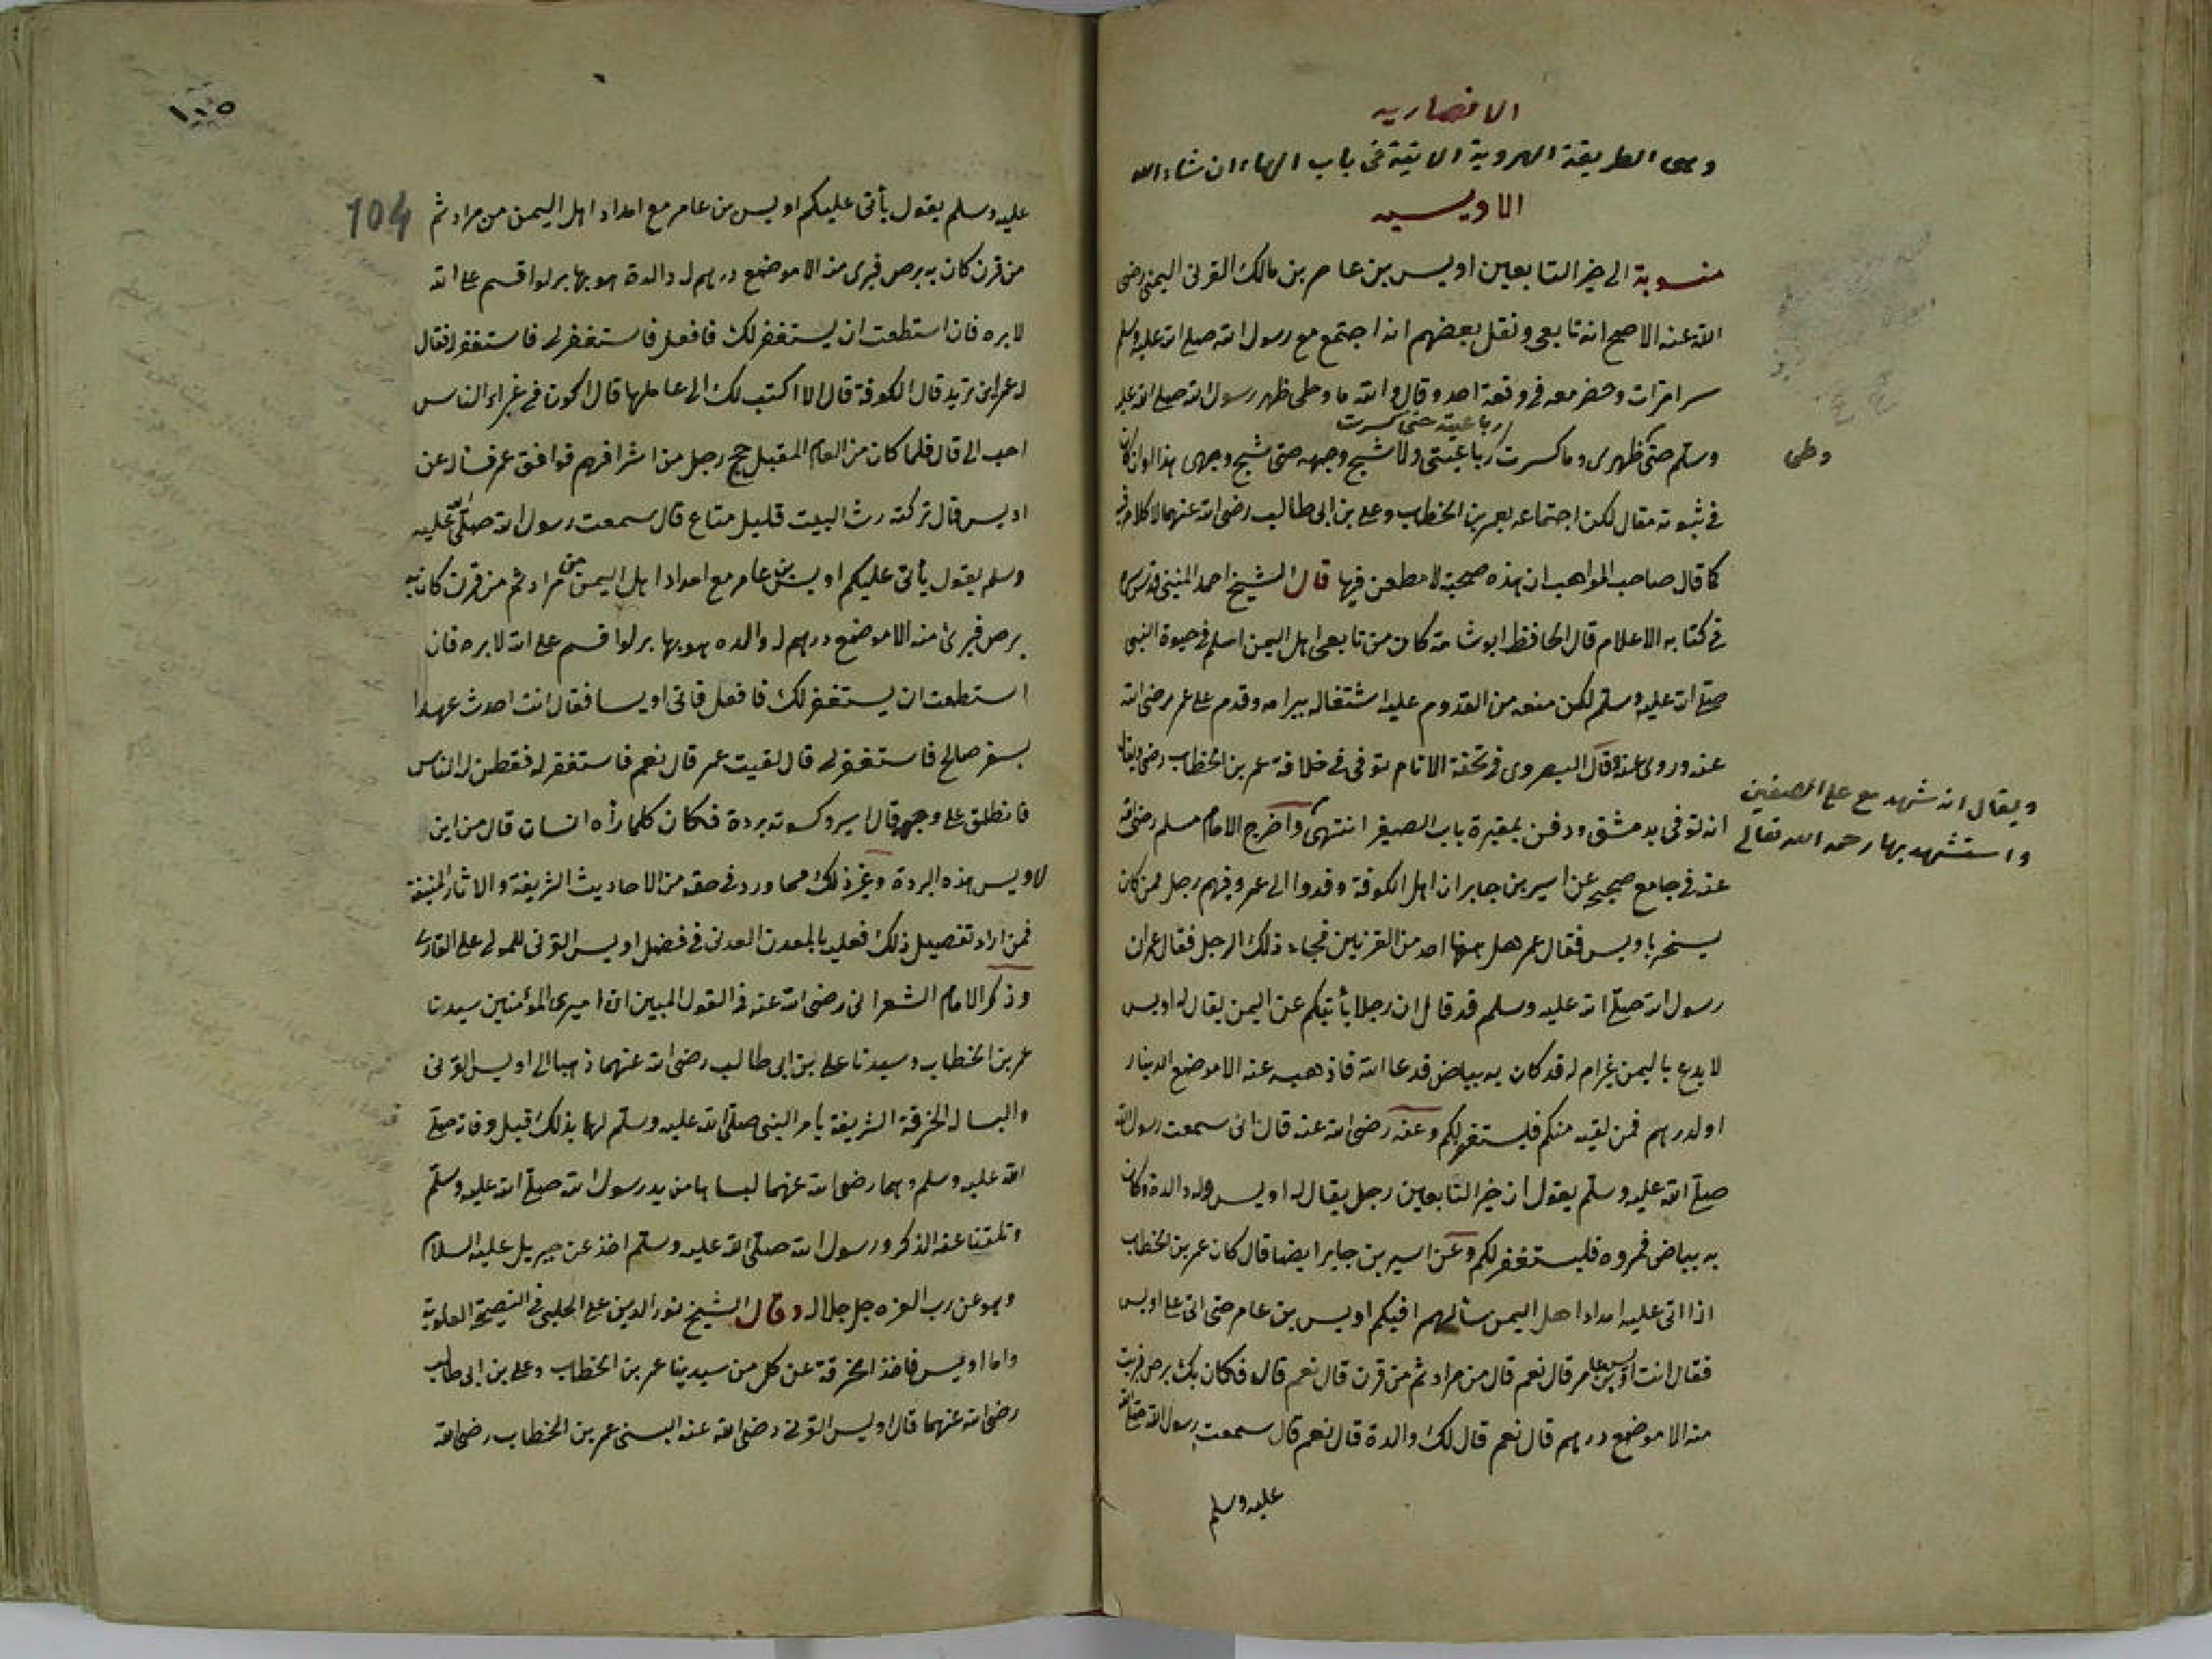 الانصاريه
وهى الطريقة الهروية الاتية فى باب الهاء ان شاء الله
الاويسيه
منسوبة الى خير التابعين اويس بن عامر بن مالك القرنى اليمنى رضى
الله عنه الاصح انه تابعى ونقل بعضهم انه اجتمع مع رسول الله صلى الله عليه وسلم
مرات وحضر معه فى وقعة احد وقال والله ما وطى ظهر رسول الله صلى الله عليه
رباعيته حتى كسرت
وسلم حتى ظهرى وما كسرت رباعيتى ولا شج وجهه حتى شج وجهى هذا وان كان
وطى
فى ثبوته مقال لكن اجتماعه بعمر بن الخطاب وعلى بن ابى طالب رضى الله عنهما لا كلام فيه
كما قال صاحب المواهب ان هذه صحبة لا مطعن فيها قال الشيخ احمد المنينى قدس سره
فى كتابه الاعلام قال الحافظ ابو شامة كان من تابعى اهل اليمن اسلم فى حيوة النبى
صلى الله عليه وسلم لكن منعه من القدوم عليه اشتغاله ببر امه وقدم على عمر رضى الله
عنه وروى عنه قال البصروى فى تحفة الانام توفى فى خلافة عمر بن الخطاب رضى ويقال
ويقال انه شهد مع على الصفين
واستشهد بها رحمه الله تعالى
انه توفى بدمشق ودفن بمقبرة باب الصغير انتهى واخرج الامام مسلم رضى الله
عنه فى جامع صحيحه عن اسير بن جابر ان اهل الكوفة وفدوا الى عمر وفيهم رجل ممن كان
يسخر باويس فقال عمر هل ههنا احد من القرنيين فجاء ذلك الرجل فقال عمر ان
رسول الله صلى الله عليه وسلم قد قال ان رجلا يأتيكم عن اليمن يقال له اويس
لا يدع باليمن غير ام له قد كان به بياض فدعا الله فاذهبه عنه الا موضع الدينار
او الدرهم فمن لقيه منكم فليستغفر لكم وعنه رضى الله عنه قال انى سمعت رسول الله
صلى الله عليه وسلم يقول ان خير التابعين رجل يقال له اويس وله والدة وكان
به بياض فمروه فليستغفر لكم وعن اسير بن جابر ايضا قال كان عمر بن الخطاب
اذا اتى عليه امداد اهل اليمن سألهم افيكم اويس بن عامر حتى اتى على اويس
فقال انت اويس بن عامر قال نعم قال من مراد ثم من قرن قال نعم قال فكان بك برص فبريت
منه الا موضع درهم قال نعم قال لك والدة قال نعم قال سمعت رسول الله صلى الله
عليه وسلم
١٠٥
104
عليه وسلم يقول يأتى عليكم اويس بن عامر مع امداد اهل اليمن من مراد ثم
من قرن كان به برص فبرى منه الا موضع درهم له والدة هو بها بر لو اقسم على الله
لابره فان استطعت ان يستغفر لك فافعل فاستغفر له فاستغفر له فقال
له عمر اين تريد قال الكوفة قال الا اكتب لك الى عاملها قال اكون فى غبراء الناس
احب الى قال فلما كان من العام المقبل حج رجل من اشرافهم فوافق عمر فساله عن
اويس قال تركته رث البيت قليل متاع قال سمعت رسول الله صلى الله عليه
وسلم يقول يأتى عليكم اويس بن عامر مع امداد اهل اليمن من مراد ثم من قرن كان به
برص فبرئ منه الا موضع درهم له والده هو بها بر لو اقسم على الله لابره فان
استطعت ان يستغفر لك فافعل فاتى اويسا فقال انت احدث عهدا
بسفر صالح فاستغفر له قال لقيت عمر قال نعم فاستغفر له ففطن له الناس
فانطلق على وجهه قال اسير وكسوته بردة فكان كلما رأه انسان قال من اين
لاويس هذه البردة وغير ذلك مما ورد فى حقه من الاحاديث الشريفة والاثار المنيفة
فمن اراد تفصيل ذلك فعليه بالمعدن العدنى فى فضل اويس القرنى للمولى على القارى
وذكر الامام الشعرانى رضى الله عنه فى القول المبين ان اميرى المؤمنين سيدنا
عمر بن الخطاب وسيدنا على بن ابى طالب رضى الله عنهما ذهبا الى اويس القرنى
والبساه الخرقة الشريفة بامر النبى صلى الله عليه وسلم لهما بذلك قبل وفاته صلى
الله عليه وسلم وهما رضى الله عنهما لبساها من يد رسول الله صلى الله عليه وسلم
وتلقنا عنه الذكر ورسول الله صلى الله عليه وسلم اخذ عن جبريل عليه السلام
وهو عن رب العزه جل جلاله وقال الشيخ نور الدين على الحلبى فى النصيحة العلوية
واما اويس فاخذ الخرقة عن كل من سيدينا عمر بن الخطاب وعلى بن ابى طالب
رضى الله عنهما قال اويس القرنى رضى الله عنه البسنى عمر بن الخطاب رضى الله